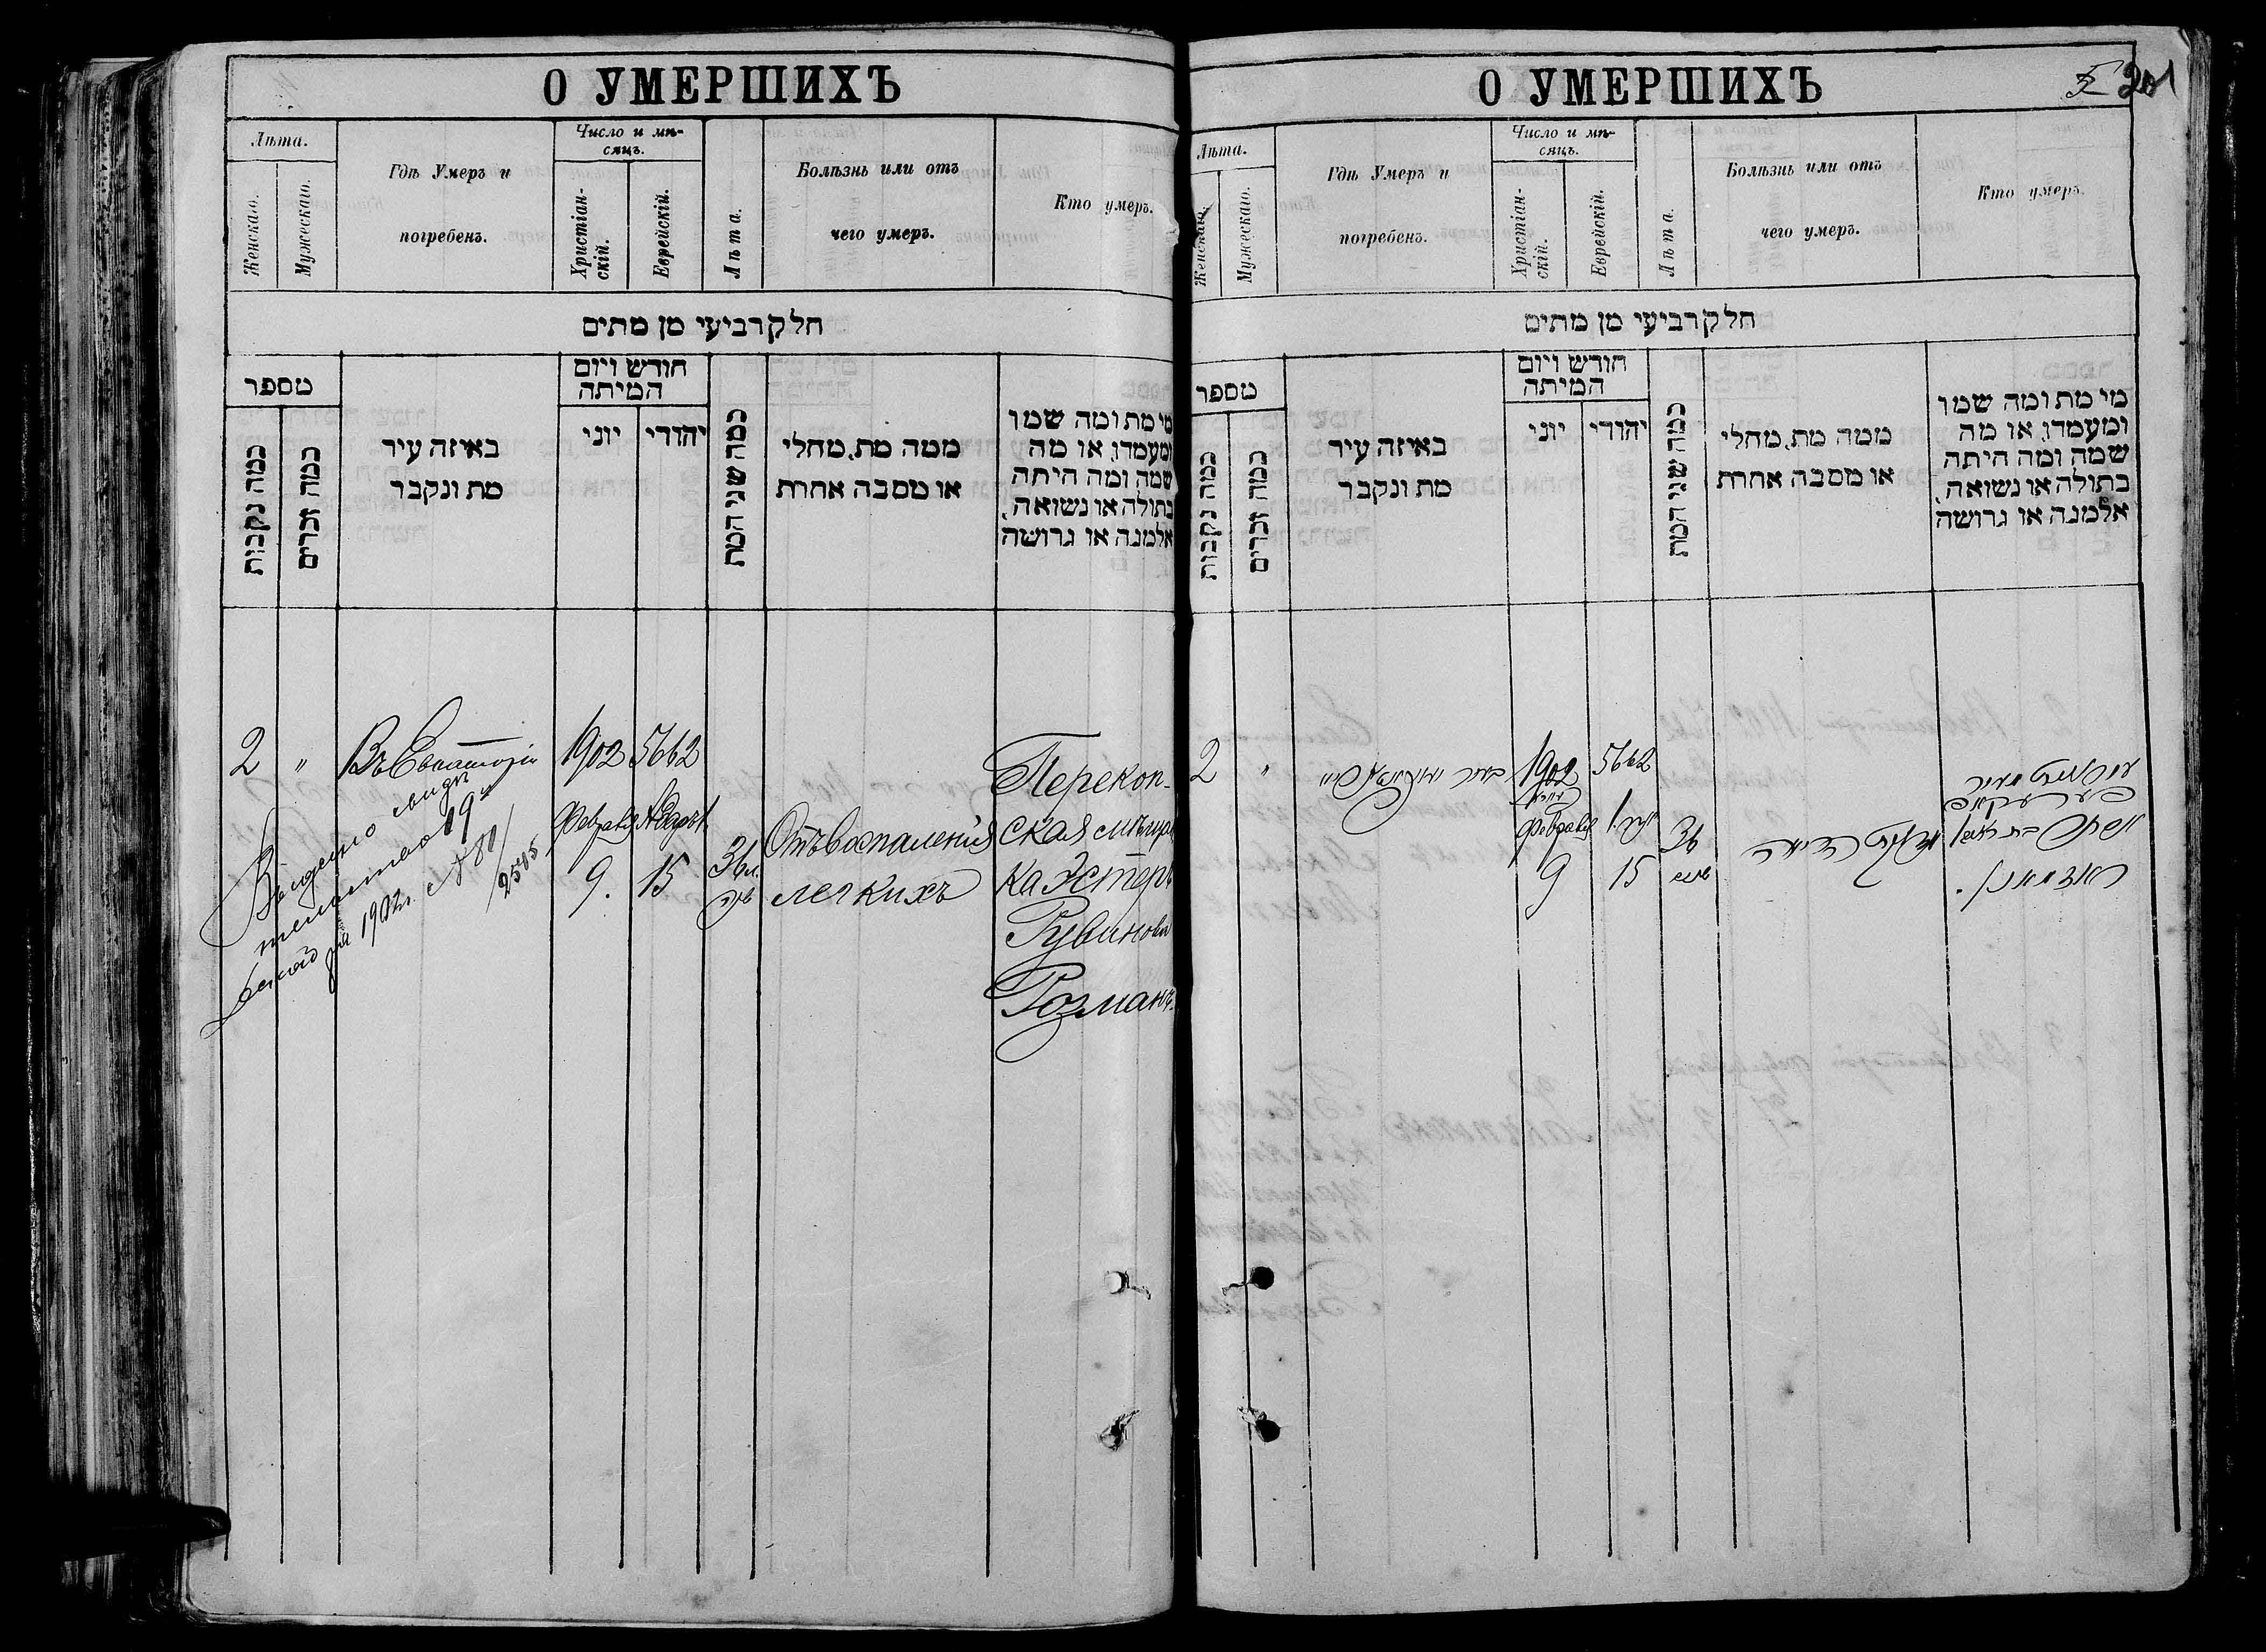 О УМЕРШИХЪ
Лѣта.
Женскаго.
Мужескаго.
Гдѣ Умеръ и
погребенъ.
Число и мѣ-
сяцъ.
Христіан-
скій.
Еврейскій.
Лѣта.
Болѣзнь или отъ
чего умеръ.
Кто умеръ.
חלק רביעי מן מתים
מספר
כמה נקבות
כמה זכרים
באיזה עיר
מת ונקבר
חודש ויום
המיתה
יוני
יהודי
כמה שני המת
ממה מת, מחלי
או מסבה אחרת
מי מת ומה שמו
ומעמדו, או מה
שמה ומה היתה
בתולה או נשואה,
אלמנה או גרושה
2 " Въ Евпаторіи 1902 5662
Февраля Адаръ I
9. 15
36 л.
Отъ воспаленія
легкихъ
Перекоп-
ская мѣщан
ка Эстеръ
Рувинова
Розманъ.
Выдено свидѣ
тельство 19
за 1902 г. № 80/
2505
О УМЕРШИХЪ
201
Лѣта.
Женскаго.
Мужескаго.
Гдѣ Умеръ и
погребенъ.
Число и мѣ-
сяцъ.
Христіан-
скій.
Еврейскій.
Лѣта.
Болѣзнь или отъ
чего умеръ.
Кто умеръ.
חלק רביעי מן מתים
מספר
כמה נקבות
כמה זכרים
באיזה עיר
מת ונקבר
חודש ויום
המיתה
יוני
יהודי
כמה שני המת
ממה מת, מחלי
או מסבה אחרת
מי מת ומה שמו
ומעמדו, או מה
שמה ומה היתה
בתולה או נשואה,
אלמנה או גרושה
2 " 1902 5662
Февраля
9 15
36
אסתר בת ראובן
ראזמאן.